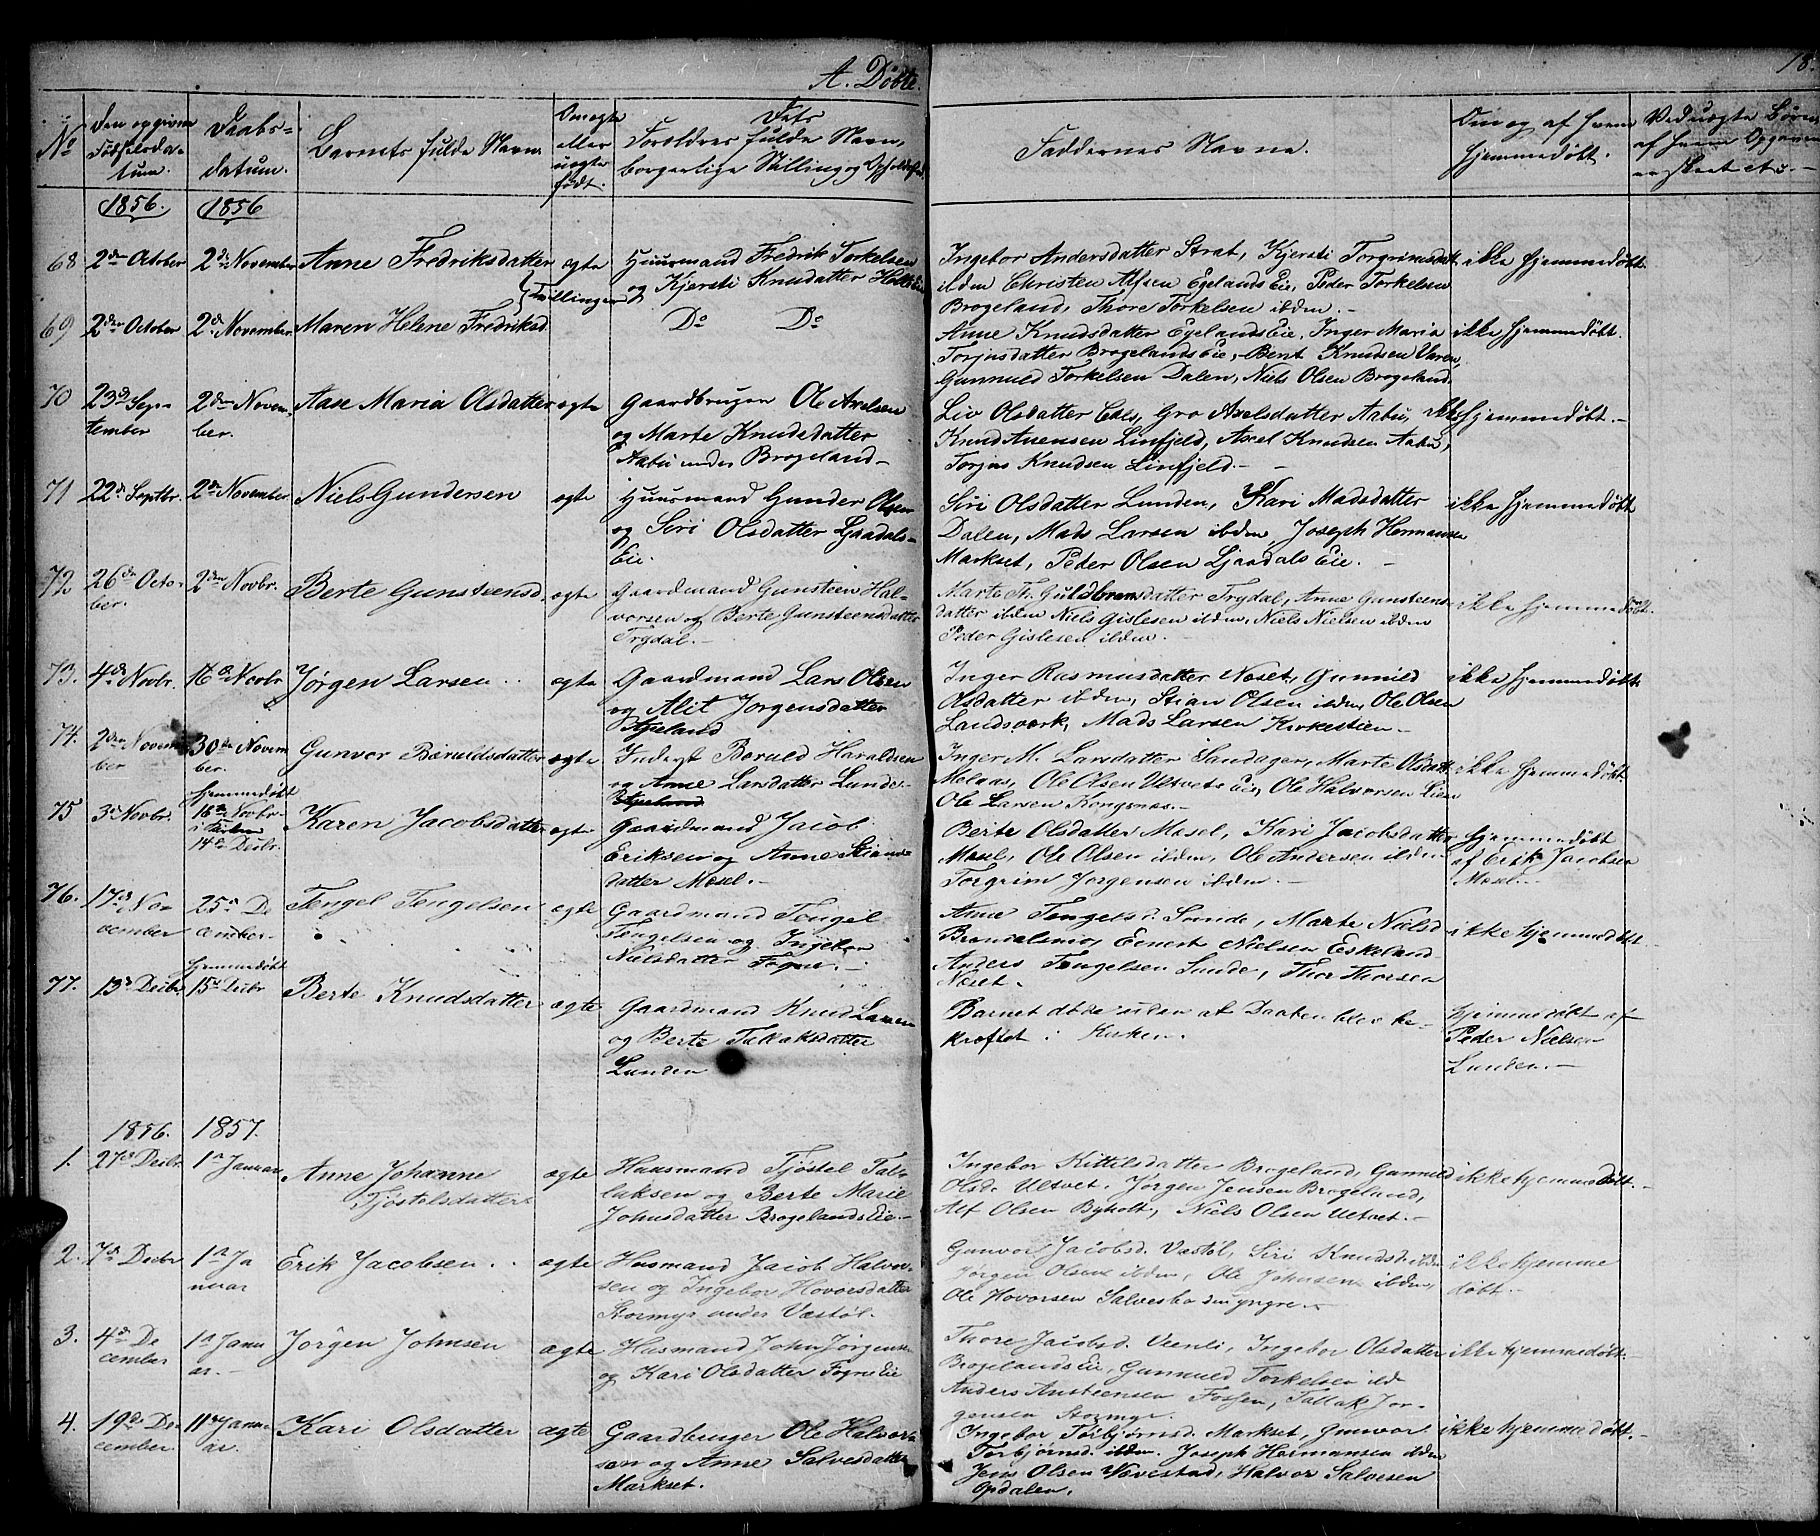 A. Døbte.
18.
No
Den opgivne Fødselsdatum.
Daabsdatum.
Barnets fulde Navn
Om ægte eller uægte født.
Dets Forældres fulde Navn, borgerlige Stilling og Opholdsst.
Faddernes Navne.
Om og af hvem hjemmedøbt.
Ved uægte Børn af hvem Opgaven er skeet etc. –
1856. 1856
68 2den October 2d November Anne Fredriksdatter ægte Huusmand Fredrik Torkelsen
og Kjersti Knudsdatter
(Tvillinger
Ingebor Andersdatter Strat, Kjersti Torgrimsdatt
ibdem Christen Alfsen Egelands Eie, Peder Torkelsen
Brogeland, Thore Torkelsen ibdem. –
ikke hjemmedøbt.
69 2den October 2d. November. Maren Helene Fredriksd Do Do
Anne Knudsdatter Egelands Eie, Inger Maria
Torjusdatter Brogelands Eie, Bent Knudsen Varen,
Gunnuld Torkelsen Dalen, Niels Olsen Brogeland.
ikke hjemmedøbt.
70 23d September 2den November. Aase Maria Olsdatter ægte Gaardbruger Ole Axelsen
og Marte Knudsdatter
Aabu under Brogeland –
Liv Olsdatter Eals, Gro Axelsdatter Aabu,
Knud Anensen Linfjeld, Axel Knudsen Aabu,
Torjus Knudsen Linfjeld. –
ikke hjemmedøbt. –
71 22d Septbr. 2d November Niels Gundersen ægte Huusmand Gunder Olsen
og Siri Olsdatter Ljaadals-
Eie.
Siri Olsdatter Lunden, Kari Madsdatter
Dalen, Mads Larsen ibdem, Joseph Hermansen
Markset, Peder Olsen Ljaadals Eie. –
ikke hjemmedøbt
72 26de October. 2den Novbr. Berte Gunsteensd. ægte Gaardmand Gunsteen Hal-
vorsen og Berte Gunsteensdatter
Trydal. –
Marte Th. Guldbransdatter Trydal, Anne Gunsteens-
datter ibdem Niels Gislesen ibdem, Niels Nielsen ibdem
Peder Gislesen ibdem.
ikke hjemmedøbt.
73. 4de Novbr. 16d Novbr Jørgen Larsen ægte Gaardmand Lars Olsen
og Alit Jørgensdatter
Egeland
Inger Rasmusdatter Næset, Gunnild
Olsdatter ibdem, Stian Olsen ibdem, Ole Olsen
Landsværk, Mads Larsen Kirkestien –
ikke hjemmedøbt.
74. 2den November 30de November. Gunvor Børuldsdatter ægte Inderst Børuld Haraldsen
og Anne Larsdatter Lunde-
Inger M. Larsdatter Sandager, Marte Olsdatt
Melaas, Ole Olsen Ultvets Eie, Ole Halvorsen Lien
Ole Larsen Kongsnæs. –
ikke hjemmedøbt
75 3d Novbr. hjemmedøbt 16de Novbr. i Kirken 14de Decbr. Karen Jacobsdatter ægte Gaardmand Jacob
Eriksen og Anne Stians-
datter Mosel. –
Berte Olsdatter Mosel, Kari Jacobsdatter
Mosel, Ole Olsen ibdem, Ole Andersen ibdem
Torgrim Jørgensen ibdem. –
hjemmedøbt
af Erik Jacobsen
Mosel. –
76. 17d November 25d December. Tengel Tengelsen ægte Gaardmand Tengel
Tengelsen og Ingebor
Nielsdatter Fogne. –
Anne Tengelsd. Sunde, Marte Nielsd
Eenert Nielsen Eskeland
Anders Tengelsen Sunde, Thor Thorsen
Næset.
ikke hjemmedøbt
77. 13d Decbr. hjemmedøbt 15d Decbr Berte Knudsdatter ægte Gaardmand Knud Larsen
og Berte Tallaksdatter
Lunden
Barnet døde uden at Daaben blev be-
kræftet i Kirken.
hjemmedøbt af
Peder Nielsen
Lunden. –
1856. 1857.
1. 27d Decbr. 1d Januar Anne Johanne
Tjøstelsdatter ægte Huusmand Tjøstel Tal-
laksen og Berte Marie
Johnsdatter Brogelands Eie. –
Ingebor Kittilsdatter Brogeland, Gunnuld
Olsd. Ultvet. Jørgen Jensen Brogeland,
Alf Olsen Byholt, Niels Olsen Ultvet. –
ikke hjemmedøbt. –
2. 7d Decbr 1d Januar Erik Jacobsen ægte Husmand Jacob Halvor-
sen og Ingebor Hovorsdatter
Stormyr under Vastøl.
Gunvor Jacobsd. Vastøl, Siri Knudsd. ibdm
Jørgen Olsen ibdem, Ole Johnsen ibdem,
Ole Hovorsen Salvesbo den yngre. –
ikke hjemme
døbt. –
3. 4d December 1d Januar. – Jørgen Johnsen ægte Husmand John Jørgensen
og Kari Olsdatter Fogne Eie
Thore Jacobsd. Veenli, Ingebor Olsdatter
Brogelands Eie, Gunnuld Torkelsen ibd.
Anders Austeensen Fossen, Tallak Jør-
gensen Stormyr.
ikke hjemmedøbt. –
4. 19de December. 11d Januar. Kari Olsdatter ægte Gaardbruger Ole Halvor-
sen og Anne Salvesdatter
Markset.
Ingebor Torbjørnsd. Markset, Gunvor
Torbjørnsd. ibdem. Joseph Hermansen ibdem
Jens Olsen Vævestad, Halvor Salvesen
Opdalen.
ikke hjemmedøbt. –